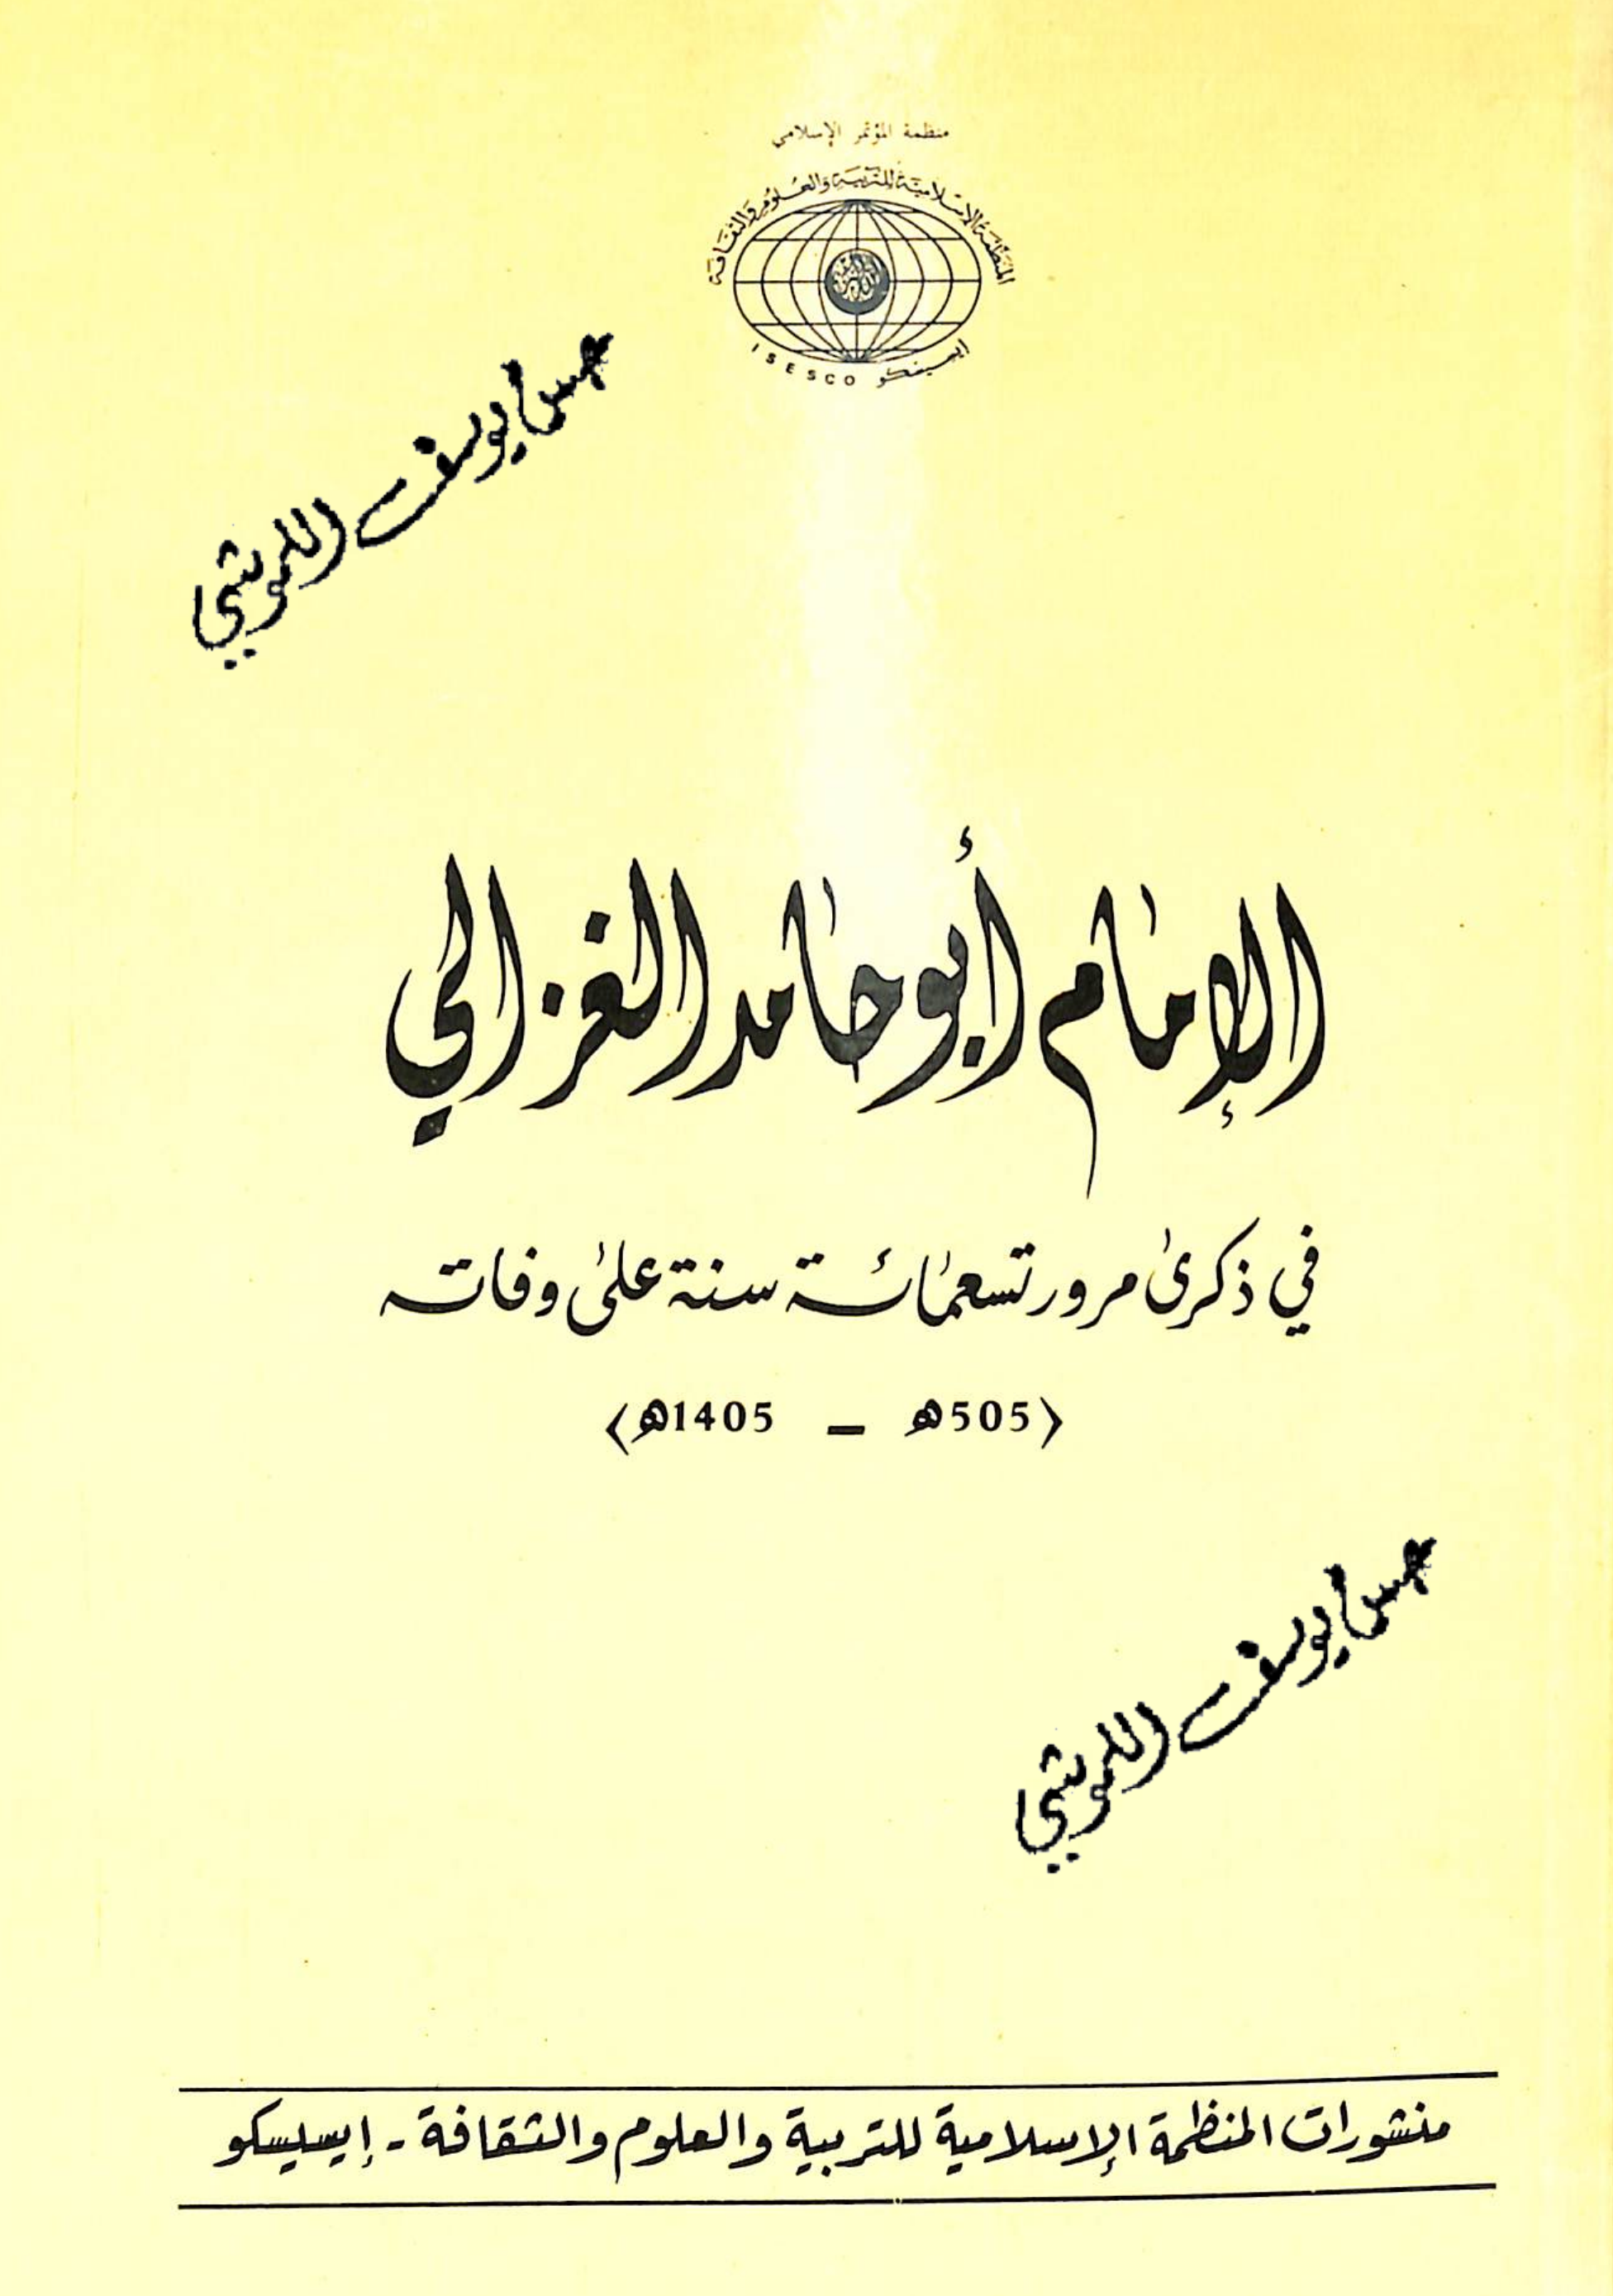 منظمة المؤتمر الإسلامي
المنظمة الإسلامية للتربية والعلوم والثقافة
ISESCO إيسيسكو
الإمام أبو حامد الغزالي
في ذكرى مرور تسعمائة سنة على وفاته
(505هـ – 1405هـ)
منشورات المنظمة الإسلامية للتربية والعلوم والثقافة - إيسيسكو